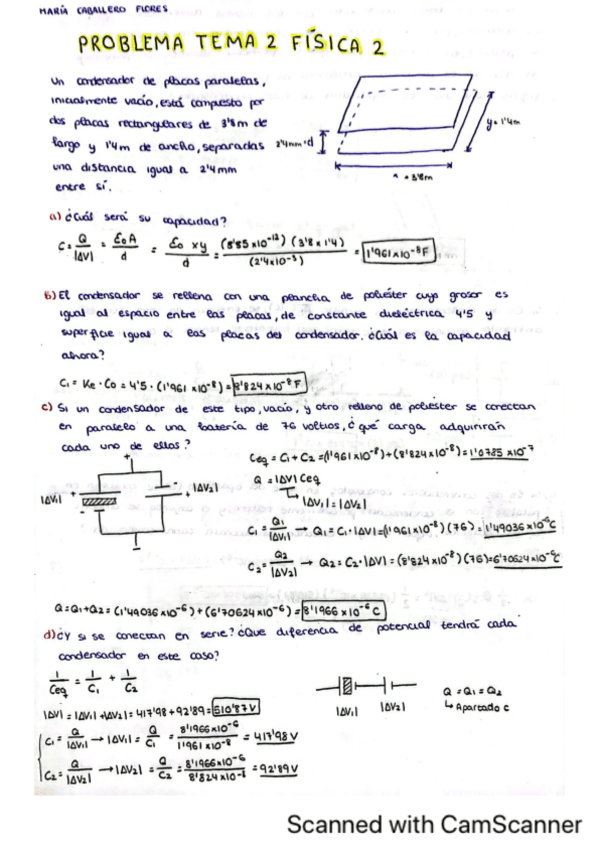 MARÍA CABALLERO FLORES
PROBLEMA TEMA 2 FÍSICA 2
Un condensador de placas paralelas,
inicialmente vacío, está compuesto por
dos placas rectangulares de 3'8m de
largo y 1'4m de ancho, separadas
una distancia igual a 2'4mm
entre sí.
2'4mm=d
y=1'4m
x=3'8m
a) ¿Cuál será su capacidad?
C = Q/|ΔV| = ε0 A/d = ε0 xy/d = (8'85x10^-12)(3'8x1'4)/(2'4x10^-3) = 1'961x10^-8 F
b) El condensador se rellena con una plancha de poliéster cuyo grosor es
igual al espacio entre las placas, de constante dieléctrica 4'5 y
superficie igual a las placas del condensador. ¿Cuál es la capacidad
ahora?
C1 = Ke · C0 = 4'5 · (1'961x10^-8) = 8'824x10^-8 F
c) Si un condensador de este tipo, vacío, y otro relleno de poliéster se conectan
en paralelo a una batería de 76 voltios, ¿qué carga adquirirán
cada uno de ellos?
Ceq = C1 + C2 = (1'961x10^-8) + (8'824x10^-8) = 1'0785x10^-7
Q = |ΔV| Ceq
↳ |ΔV1| = |ΔV2|
|ΔV1| + + |ΔV2|
C1 = Q1/|ΔV1| → Q1 = C1·|ΔV| = (1'961x10^-8)(76) = 1'49036x10^-6 C
C2 = Q2/|ΔV2| → Q2 = C2·|ΔV| = (8'824x10^-8)(76) = 6'70624x10^-6 C
Q = Q1 + Q2 = (1'49036x10^-6) + (6'70624x10^-6) = 8'1966x10^-6 C
d) ¿Y si se conectan en serie? ¿Que diferencia de potencial tendrá cada
condensador en este caso?
1/Ceq = 1/C1 + 1/C2
|ΔV1| |ΔV2|
Q = Q1 = Q2
↳ Apartado c
|ΔV| = |ΔV1| + |ΔV2| = 417'98 + 92'89 = 510'87 V
C1 = Q/|ΔV1| → |ΔV1| = Q/C1 = 8'1966x10^-6/1'961x10^-8 = 417'98 V
C2 = Q/|ΔV2| → |ΔV2| = Q/C2 = 8'1966x10^-6/8'824x10^-8 = 92'89 V
Scanned with CamScanner